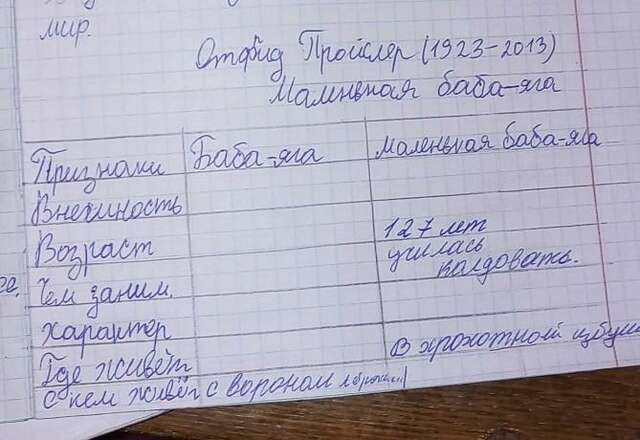 мир.
Отфрид Пройслер (1923-2013)
Маленькая баба-яга
Признаки Баба-яга маленькая баба-яга
Внешность
Возраст 127 лет
Чем заним. училась колдовать.
Характер
Где живёт В крохотной избуш
С кем живёт с вороном